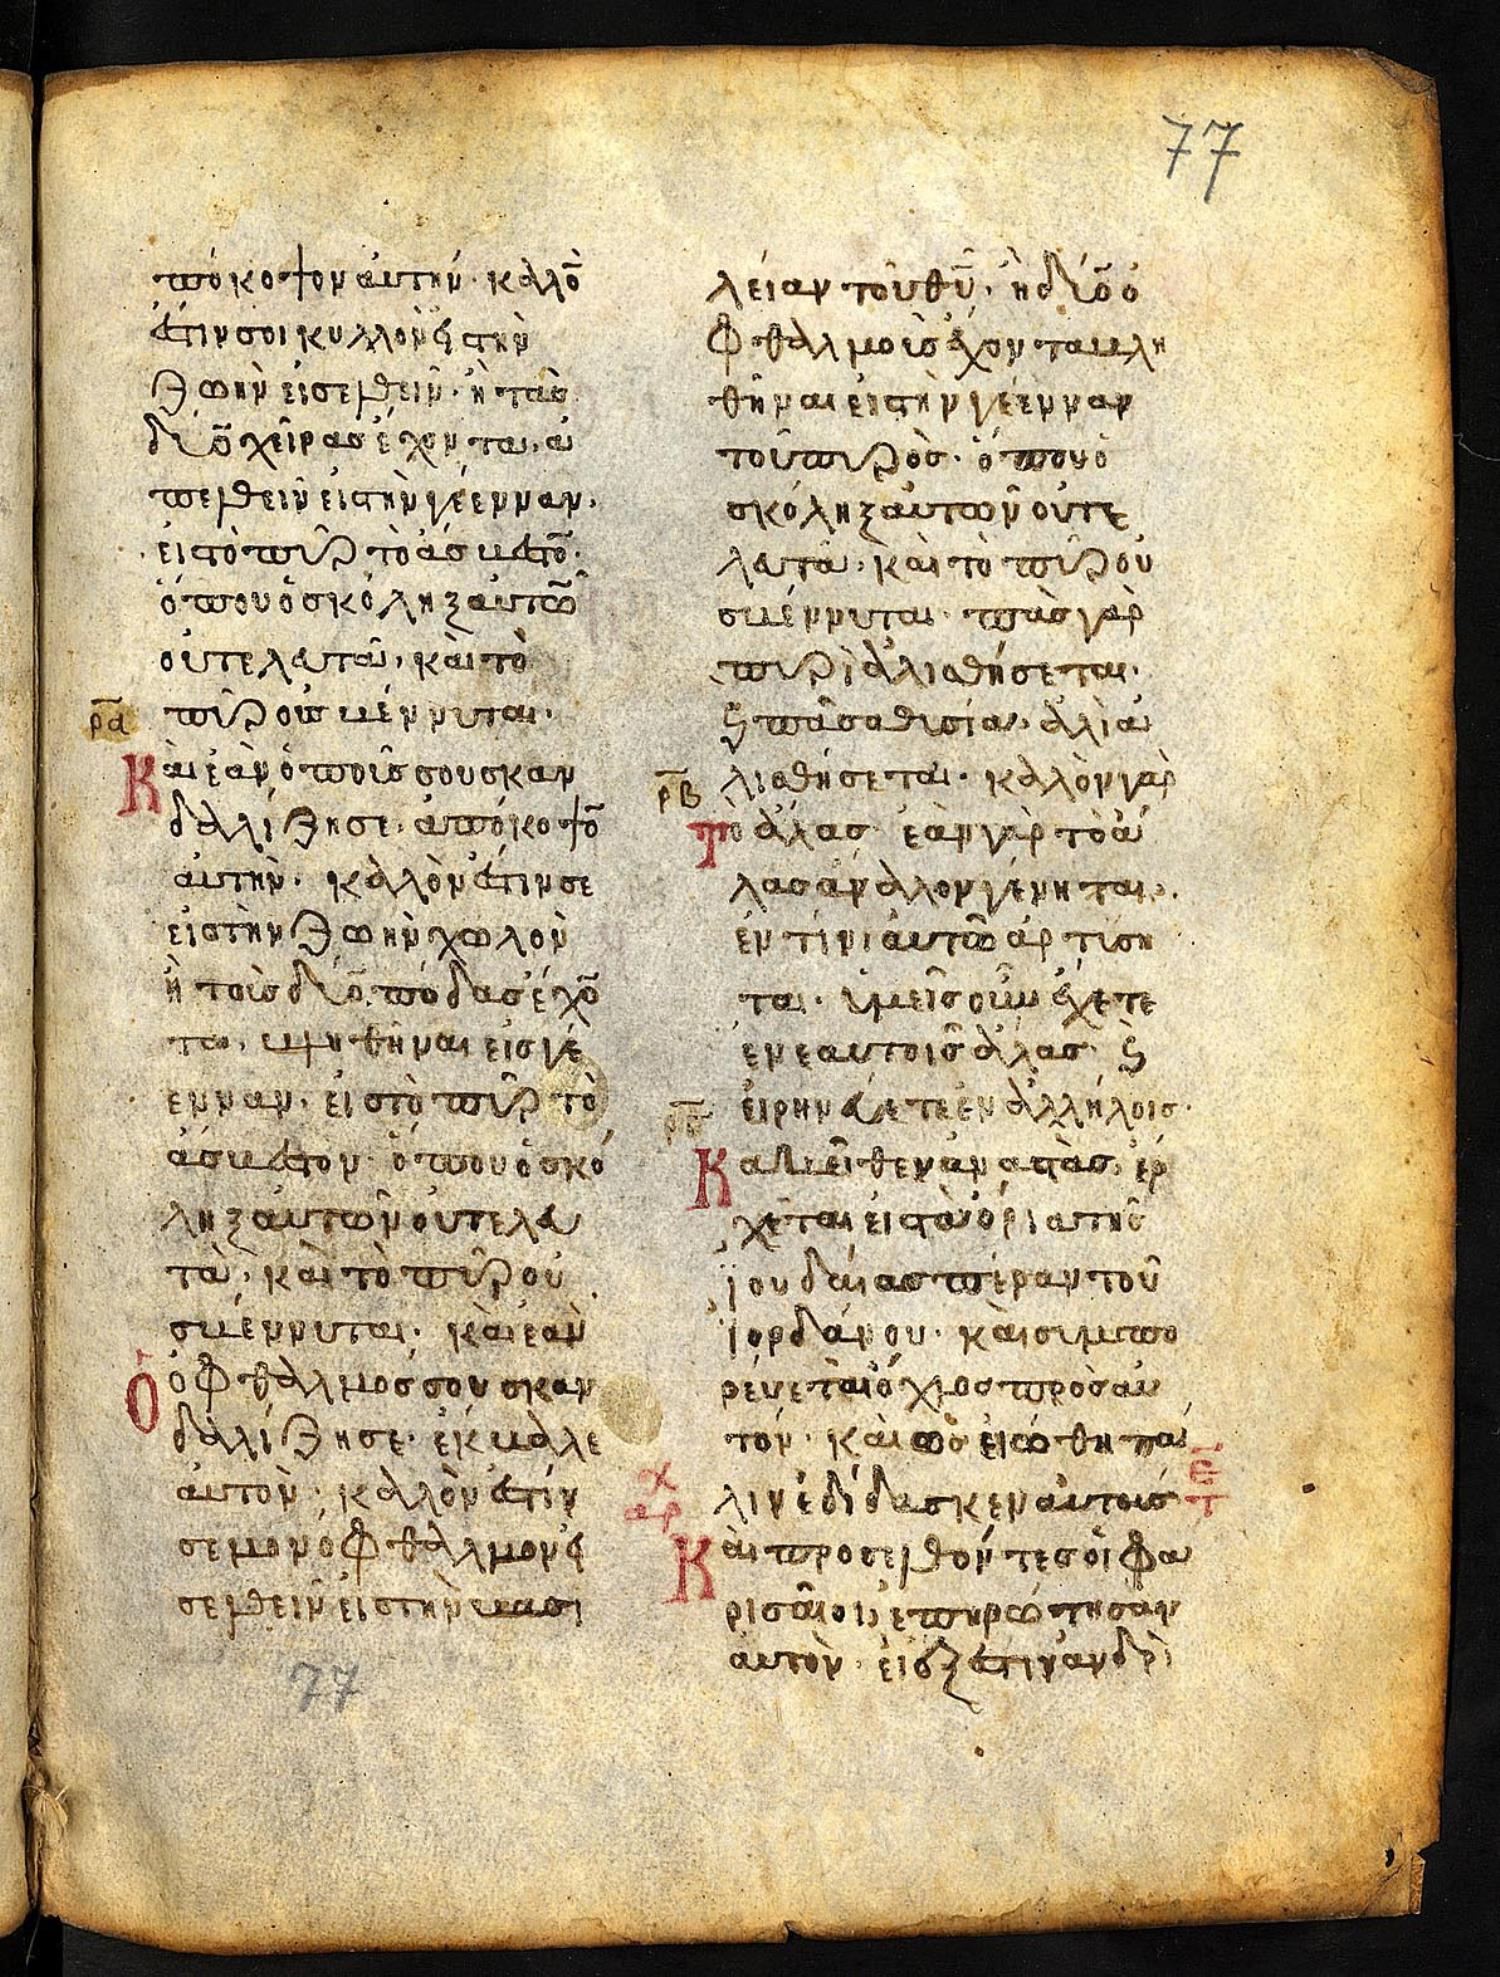 77
πόκοψον αὐτήν· καλὸ̄
ἐστίν σοι κυλλὸν εἰς τὴν
ζωὴν εἰσελθεῖν· ἢ τὰς
δύο χεῖρας ἔχοντα, ἀ
πελθεῖν εἰς τὴν γέενναν·
εἰς τὸ πῦρ τὸ ἄσβεστο̄·
ὅπου ὁ σκόληξ αὐτῶ̄
οὐ τελευτᾶ, καὶ τὸ
ρα
πῦρ οὐ σβέννυται·
Καὶ ἐὰν ὁ ποῦς σου σκαν
δαλίζη σε· ἀπόκοψο̄
αὐτὴν· καλὸν ἐστίν σε
εἰς τὴν ζωὴν χωλὸν
ἢ τοὺς δύο πόδας ἔχο̄
τα, βληθῆναι εἰς γέ
ενναν· εἰς τὸ πῦρ τὸ
ἄσβεστον· ὅπου ὁ σκό
ληξ αὐτῶν οὐ τελευ
τᾶ, καὶ τὸ πῦρ οὐ
σβέννυται· καὶ ἐὰν
Ὁ ὀφθαλμός σου σκαν
δαλίζη σε· ἔκβαλε
αὐτὸν· καλὸν ἐστίν
σε μονόφθαλμον εἰ
σελθεῖν εἰς τὴν βασι
77
λείαν τοῦ θῦ· ἢ δύο ὀ
φθαλμοὺς ἔχοντα βλη
θῆναι εἰς τὴν γέενναν
τοῦ πυρὸς· ὅπου ὁ
σκόληξ αὐτῶν οὐ τε
λευτᾶ· καὶ τὸ πῦρ οὐ
σβέννυται· πᾶς γὰρ
πυρὶ ἁλισθήσεται·
ϗ πᾶσα θυσία, ἁλὶ ἁ
ρβ
λισθήσεται· καλὸν γὰρ
Τὸ ἅλας· ἐὰν γὰρ τὸ ἅ
λας ἄναλον γένηται,
ἐν τίνι αὐτῶ ἀρτίση
ται· ὑμεῖς οὖν ἔχετε
ἐν ἑαυτοῖς ἅλας· ϗ
εἰρηνεύετε ἐν ἀλλήλοις·
ργ
Κακεῖθεν ἀναστὰς, ἔρ
χεται εἰς τὰ ὅρια τῆς
ϊουδαίας πέραν τοῦ
ϊορδάνου· καὶ συμπο
ρεύεται ὁ ὄχλος πρὸς αὐ
τόν· καὶ ὡς εἰώθη πά
λιν ἐδίδασκεν αὐτοὺς
χ
αρ
Καὶ προσελθόντες οἱ φα
ρισαῖοι, ἐπηρώτησαν
αὐτὸν· εἰ ἔξεστιν ἀνδρὶ